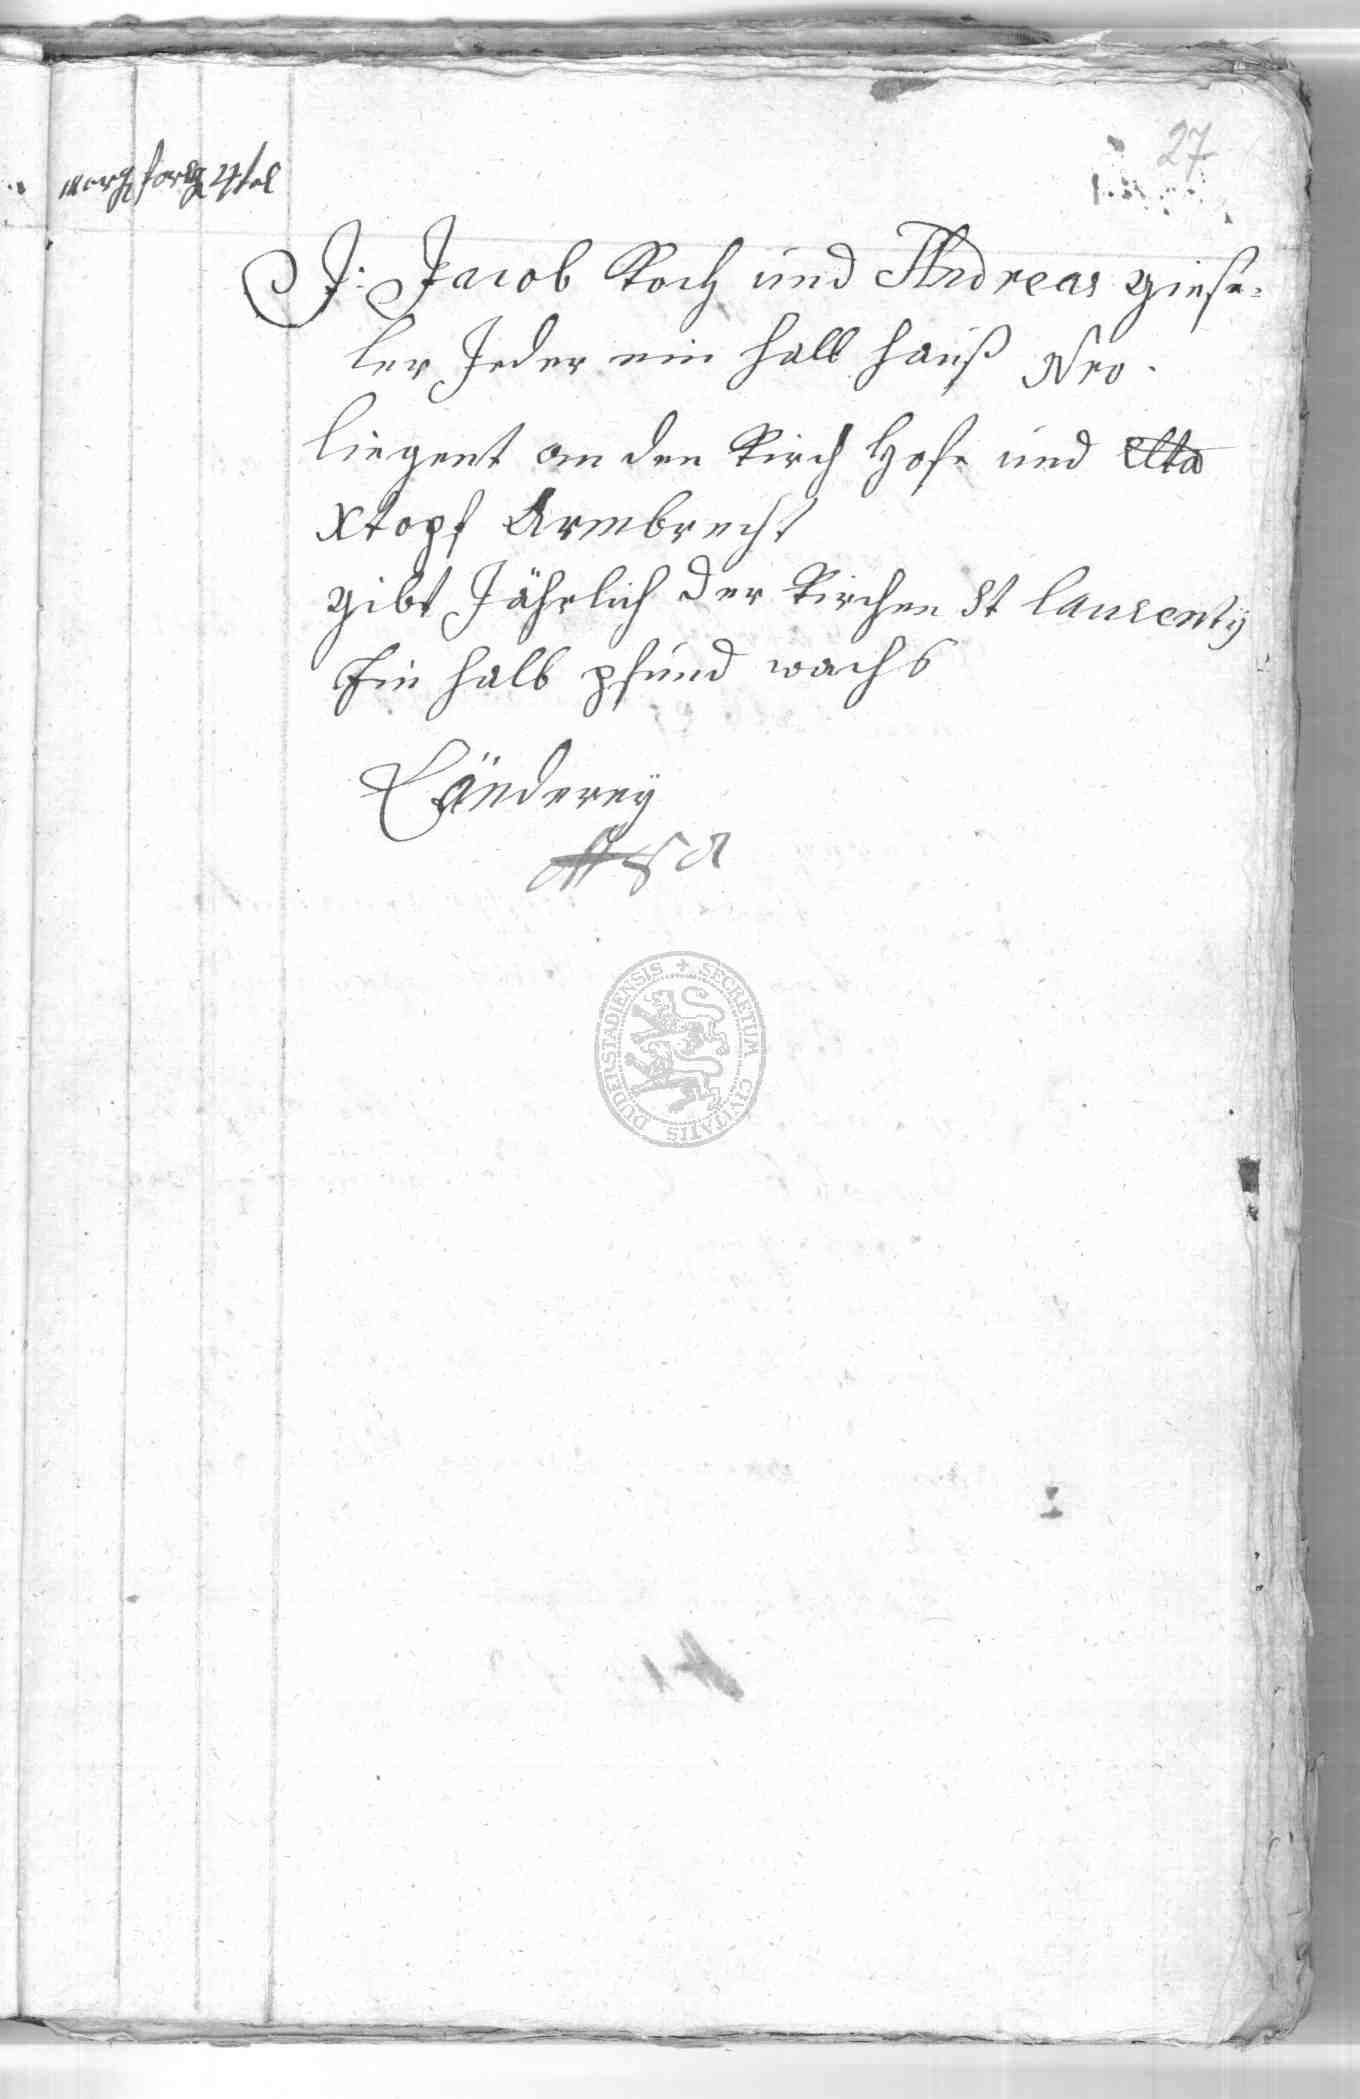 27
morg forlg 4tel
J: Jacob Koch und Andreas giese=
ler Jeder ein halb hauß Nro.
liegent an den Kirch Hofe und
Xtopf Armbrecht
gibt Jährlich der Kirchen St Laurenty
Ein halb pfund wachs
Länderey
SECRETUM CIVITATIS DUDERSTADIENSIS